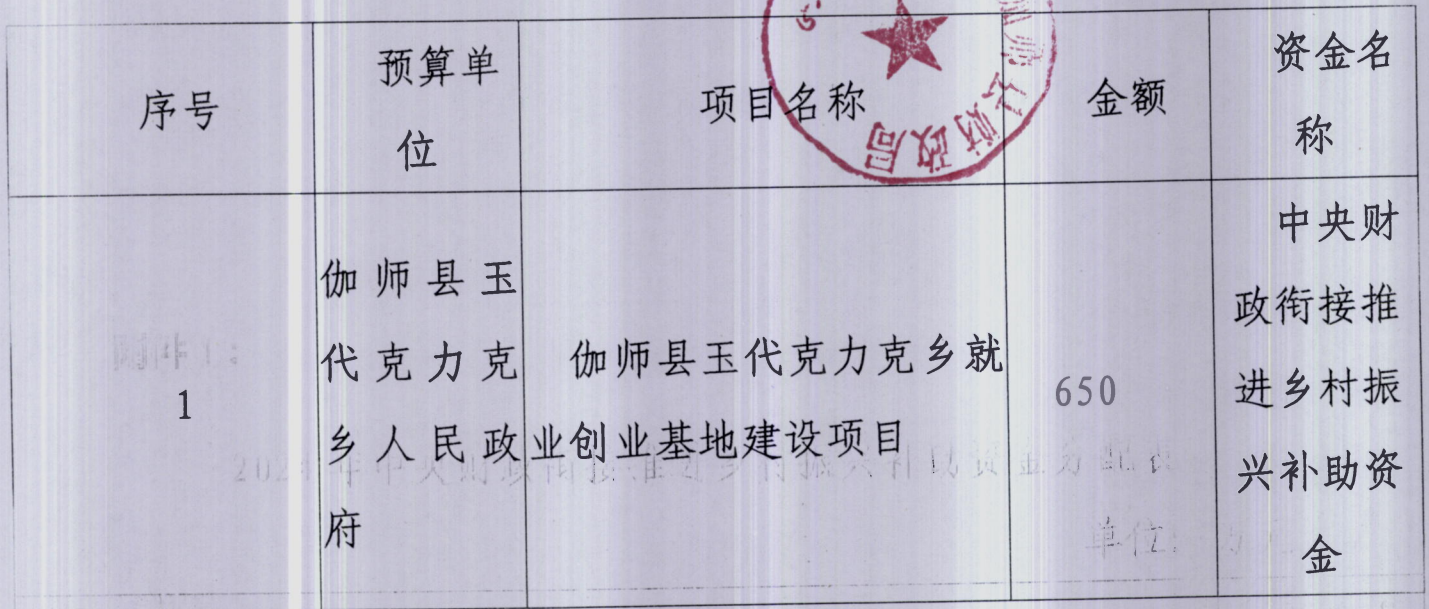 序号
预算单
位
项目名称
金额
资金名
称
1
伽师县玉
代克力克
乡人民政
府
伽师县玉代克力克乡就
业创业基地建设项目
650
中央财
政衔接推
进乡村振
兴补助资
金
财政局
单位: